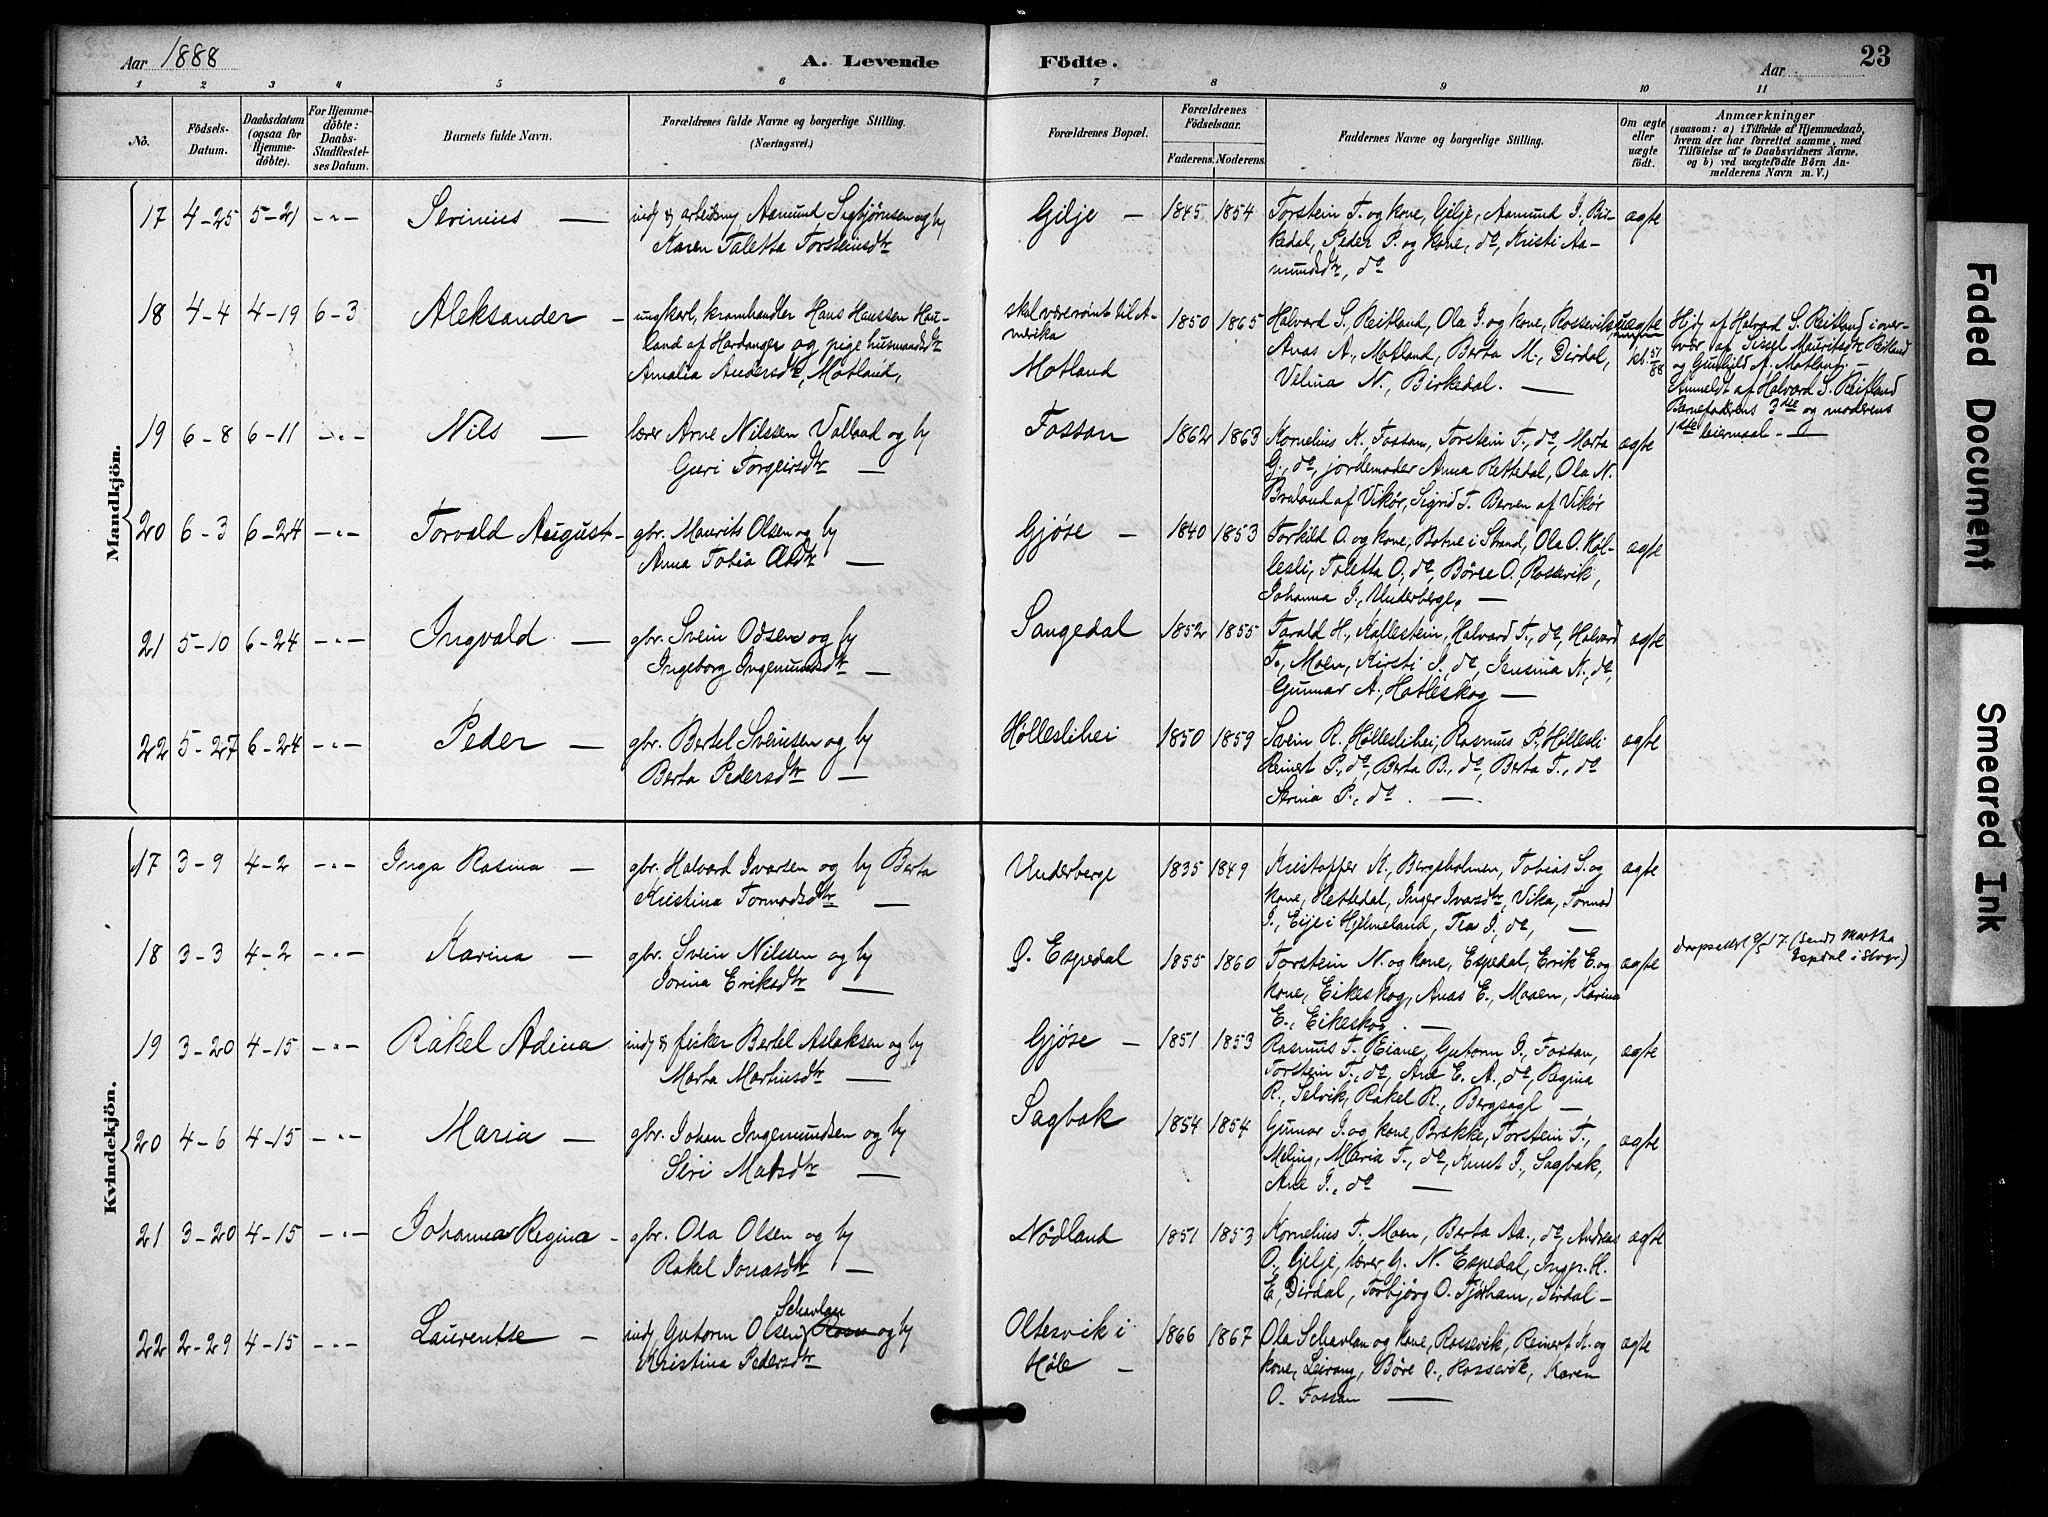 Aar 1888
A. Levende Födte.
23
Aar
1 2 3 4 5 6 7 8 9 10 11
No.
Födsels-Datum.
Daabsdatum (ogsaa for Hjemme-döbte).
For Hjemme-döbte: Daabs-Stadfæstel-ses Datum.
Barnets fulde Navn.
Forældrenes fulde Navne og borgerlige Stilling. (Næringsvei.)
Forældrenes Bopæl.
Forældrenes Födselsaar.
Faderens. Moderens.
Faddernes Navne og borgerlige Stilling.
Om ægte eller uægte födt.
Anmærkninger
(saasom: a) i Tilfælde af Hjemmedaab,
hvem der har forrettet samme, med
Tilföielse af to Daabsvidners Navne,
og b) ved uægtefödte Börn An-
melderens Navn m. V.)
Mandkjön.
17 4-25 5-21 -"- Serinius — indj & arbeidsmj Aamund Sigbjörnsen og hj
Karen Taletta Torsteinsdtr
Gilje — 1845 1854 Torstein T. og kone, Gilje, Aamund J. Bir-
kedal, Peder P. og kone, do, Kristi Aa-
mundsdtr, do
ægte
18 4-4 4-19 6-3 Aleksander — ungkarl, kramhandler Hans Hanssen Hau-
land af Hardanger og pige husmandsdtr
Amalia Andersdtr, Motland,
skal være rømt til A-
merika
Motland
1850 1865 Halvard S. Reitland, Ola J. og kone, Rossevik,
Anas A., Motland, Berta M., Dirdal,
Velina N., Birkedal. —
uægte
Hjdj af Halvard S. Reitland i over-
vær af Sissel Mauritsdtr Reitland
og Gunhild A. Motland. —
Anmeldt af Halvard S. Reitland
Barnefaderens 3die og moderens
1ste leiermaal. —
19 6-8 6-11 -"- Nils — lærer Arne Nilssen Valland og hj
Guri Torgeirsdtr —
Fossan 1862 1863 Kornelius K. Fossan, Torstein T., do, Marta
G., do, jordemoder Anna Rettedal, Ola N.
Braland af Vikör, Sigrid T. Berven af Vikör
ægte
20 6-3 6-24 -"- Torvald August — gbr. Maurits Olsen og hj
Anna Tobia Olsdtr —
Gjøse — 1840 1853 Torkild O. og kone, Botne i Strand, Ola O. Høl-
lesli, Taletta O., do, Böree O., Rossevik,
Johanna J., Underberge, —
ægte
21 5-10 6-24 -"- Ingvald — gbr. Svein Odsen og hj
Ingeborg Ingemundsdtr —
Sangedal 1852 1855 Tarald H., Kallestein, Halvard T., do, Halvard
T., Moen, Kirsti J., do, Jensina N., do,
Gunnar A., Hatleskog —
ægte
22 5-27 6-24 -"- Peder — gbr. Bertel Sveinsen og hj
Berta Pedersdtr —
Høllesliheii 1850 1859 Svein R., Høllesliheii, Rasmus P., Høllesli
Reinert P., do, Berta B., do, Berta T., do
Serina P., do. —
ægte
Kvindekjön.
17 3-9 4-2 -"- Inga Rasina — gbr. Halvard Ivarsen og hj Berta
Kristina Tormodsdtr —
Underberge 1835 1849 Kristoffer K., Bergeholmen, Tobias S. og
kone, Rettedal, Inger Ivarsdtr, Vika, Tormod
I., Eije i Hjelmeland, Tea I., do, —
ægte
18 3-3 4-2 -"- Karina — gbr. Svein Nilssen og hj
Jorina Eriksdtr —
Ø. Espedal 1855 1860 Torstein N. og kone, Espedal, Erik E. og
kone, Eikeskog, Anas E., Moen, Karina
E., Eikeskog. —
ægte
daapsattest 9/5 17. (Sendt Martha
Espdal i Stvgr.)
19 3-20 4-15 -"- Rakel Adina indj & fisker Bertel Aslaksen og hj
Marta Martinsdtr —
Gjøse — 1851 1853 Rasmus T., Eiane, Gutorm J., Fossan,
Torstein T., do, Ane E. A., do, Regina
R., Selvik, Rakel R., Bergsagl —
ægte
20 4-6 4-15 -"- Maria — gbr. Johan Ingemundsen og hj
Siri Matsdtr —
Sagbak 1854 1854 Gunnar J. og kone, Brekke, Torstein T.,
Meling, Maria T., do, Knut J., Sagbak,
Ane J., do —
ægte
21 3-20 4-15 -"- Johanna Regina — gbr. Ola Olsen og hj
Rakel Jonasdtr —
Nödland 1851 1853 Kornelius T., Moen, Berta Aa., do, Andreas
O., Gilje, lærer G. N. Espedal, Ingr. H.
E., Dirdal, Torbjörg O. Tjörham, Sirdal —
ægte
22 2-29 4-15 -"- Laurentse — indj, Gutorm Olsen Schavlan og hj
Kristina Pedersdtr
Oltesvik i
Høle — 1866 1867 Ola Schavlan og kone, Rossevik, Reinert K. og
kone, Leirang, Böre O., Rossevik, Karen
O. Fossan —
ægte
Faded Document
Smeared Ink